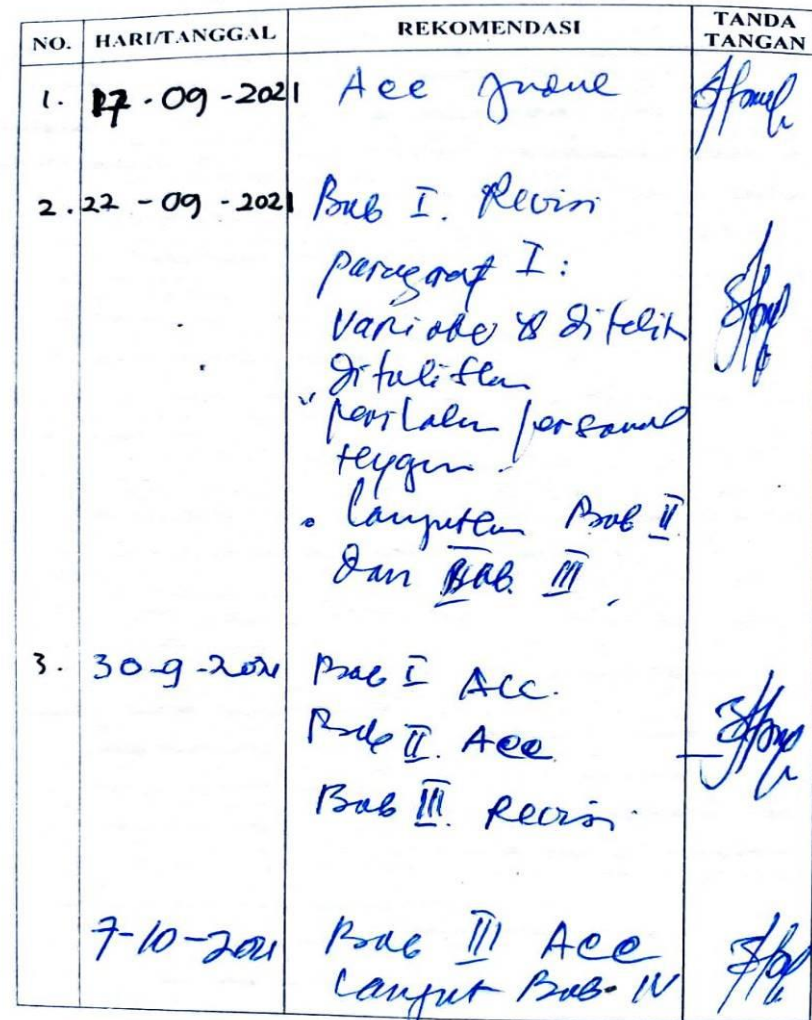 NO. HARI/TANGGAL REKOMENDASI TANDA TANGAN
1. 17-09-2021 Acc Judul
2. 22-09-2021 Bab I. Revisi
paragraf I:
Variabel yg diteliti
dituliskan
perilaku personal
hygien.
• Lanjutkan Bab II
dan Bab III
3. 30-9-2021 Bab I Acc.
Bab II. Acc
Bab III. Revisi
7-10-2021 Bab III Acc
Lanjut Bab IV